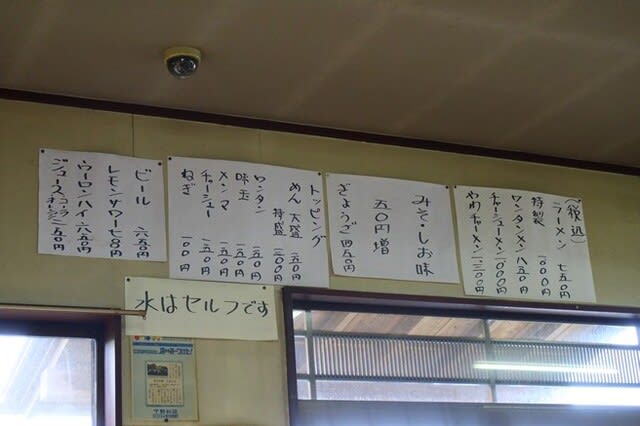 (税込)
ラーメン 七五〇円
特製 一〇〇〇円
ワンタンメン 八五〇円
チャーシューメン 一、〇〇〇円
やわチャーメン 一、二〇〇円
みそ・しお味
五〇円増
ぎょうざ 四五〇円
トッピング
めん 大盛 一五〇円
特盛 二〇〇円
ワンタン 一五〇円
味玉 一五〇円
メンマ 一五〇円
チャーシュー 一五〇円
ねぎ 一〇〇円
ビール 六五〇円
レモンサワー
ウーロンハイ 六五〇円
ジュース 一五〇円
水はセルフです